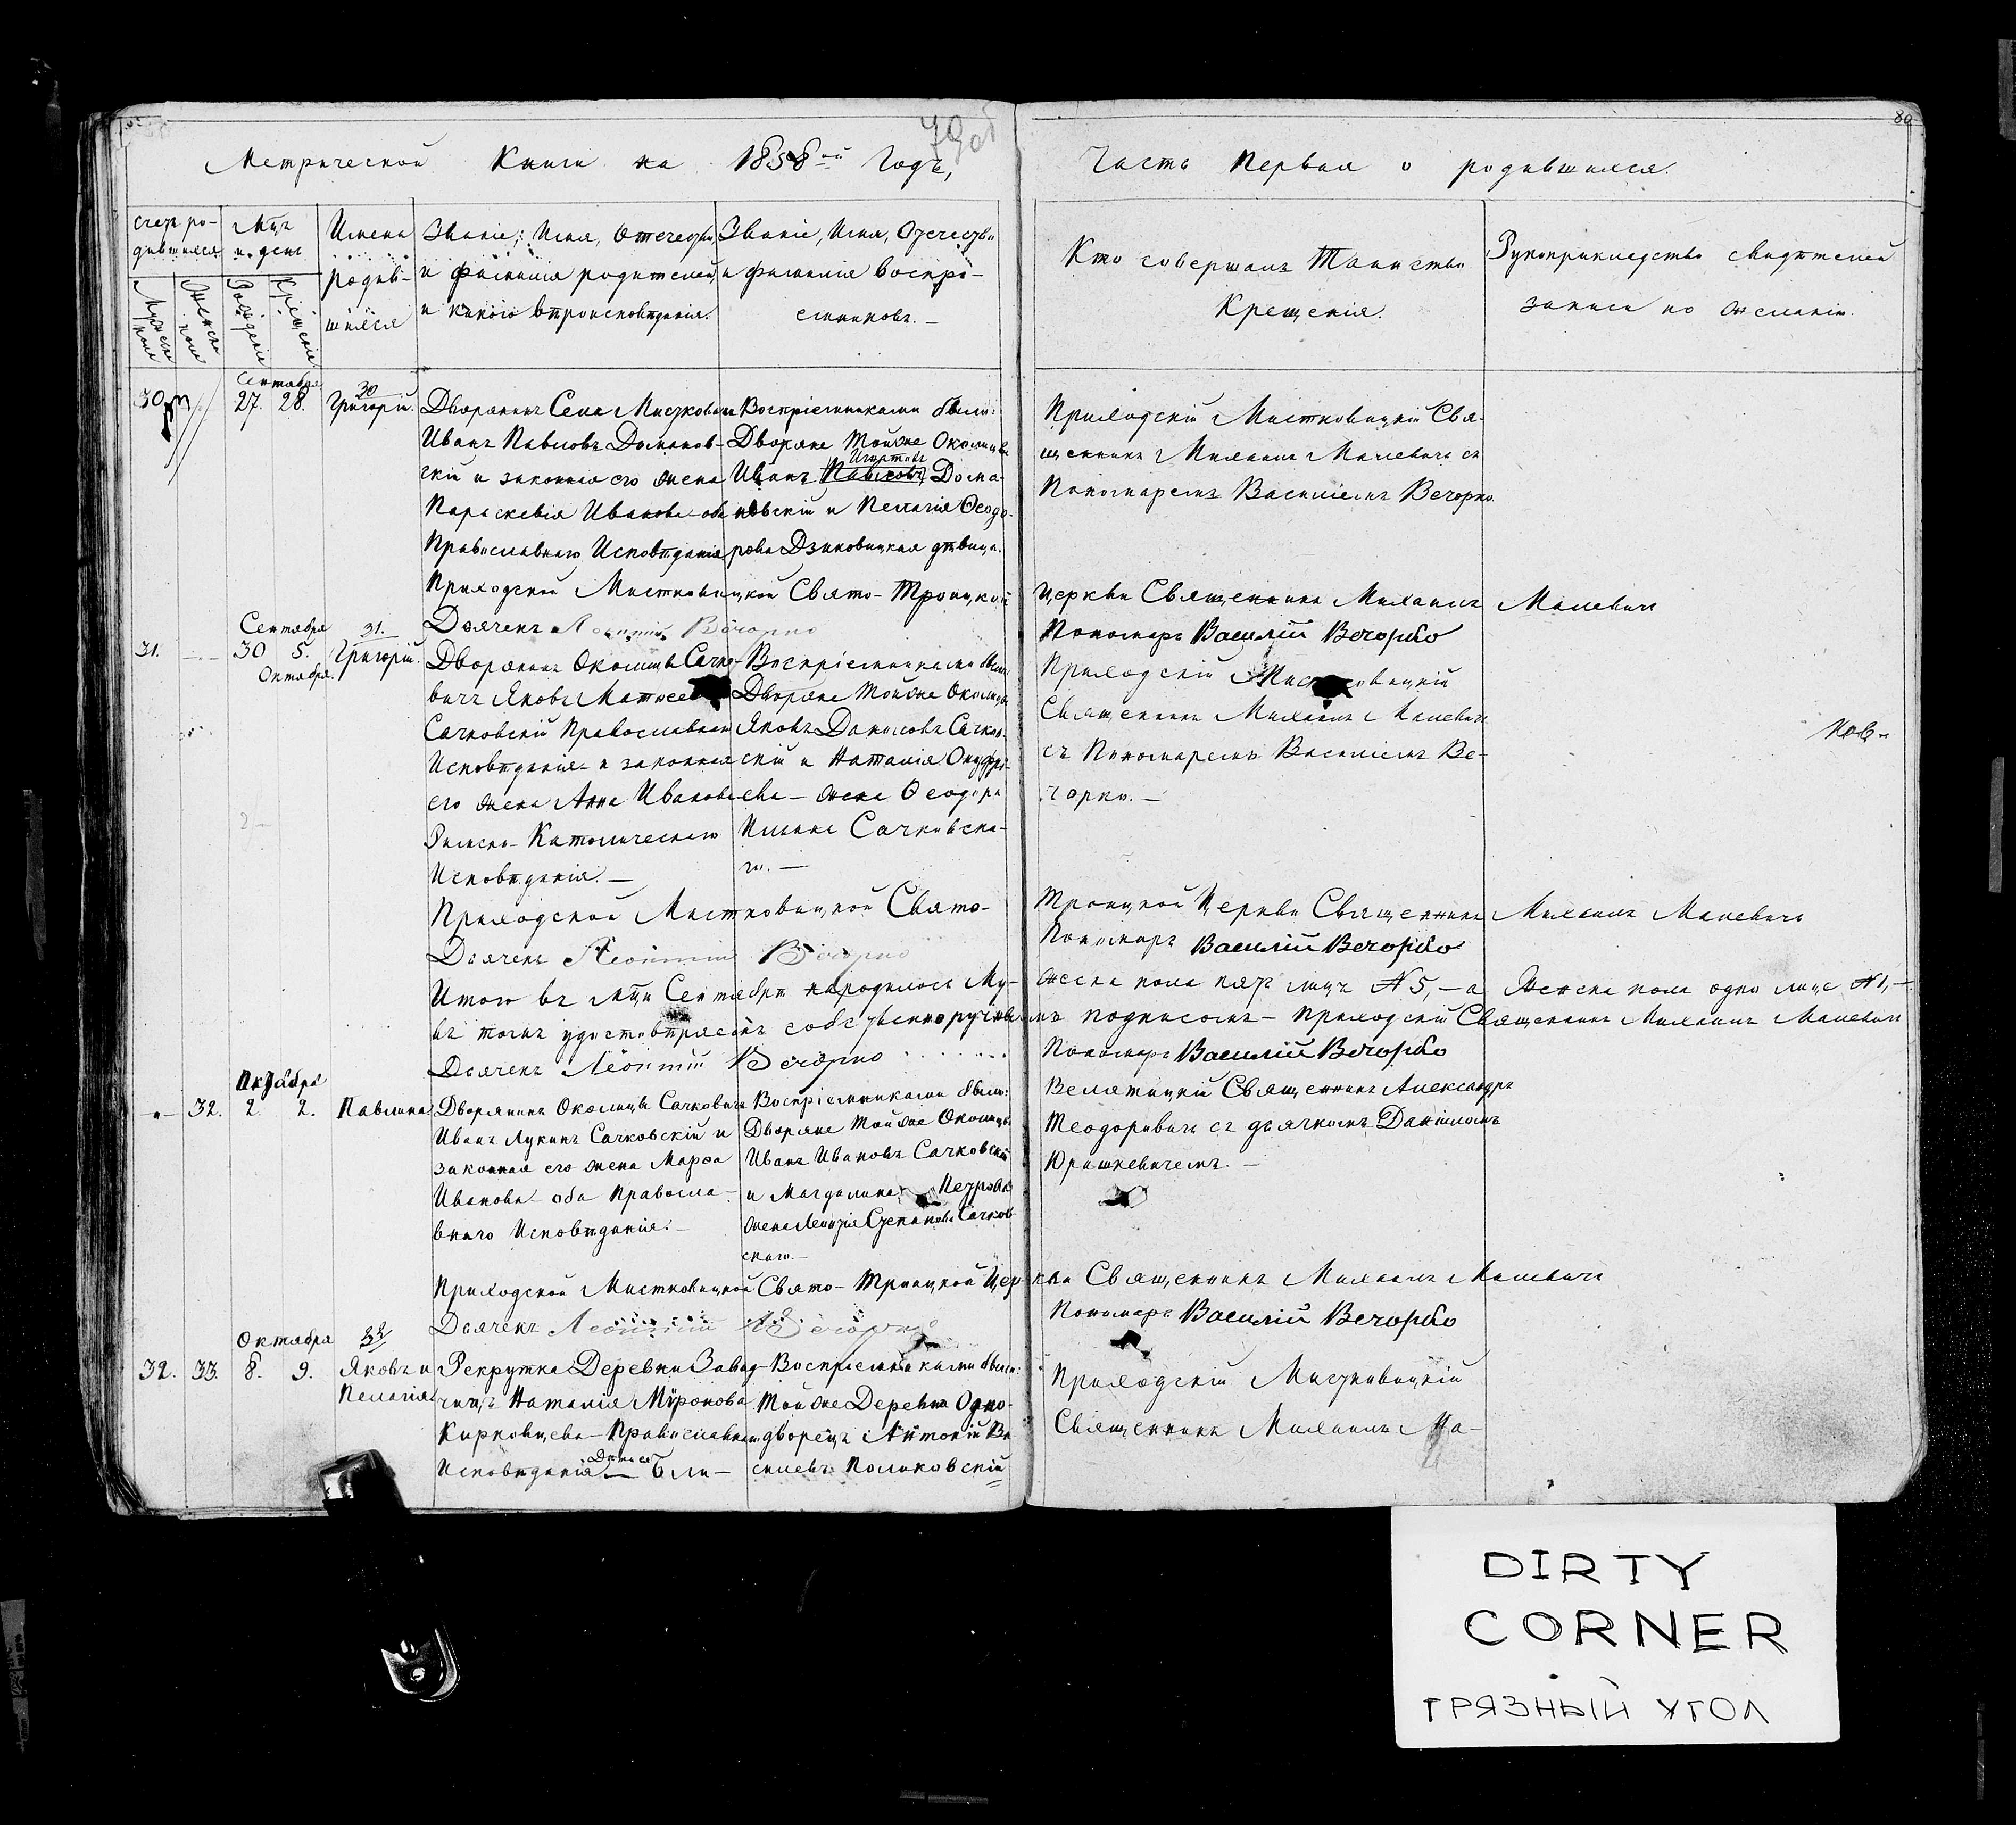 79 об
80
Метрической Книги на 1858ой Годъ,
Часть Первая о родившихся.
счетъ ро-
дившихся
Мужеска
пола
Женска
пола
Мцъ
и день
Рожденія
Крещенія
Имена
родив-
шихся
Званіе, Имя, Отечество,
и Фамилія родителей,
и какого вѣроисповѣданія.
Званіе, Имя, Отечество
и Фамилія воспрі-
емниковъ.
Кто совершалъ Таинство
Крещенія.
Рукоприкладство свидѣтелей
записи по желанію.
30
Сентября
27. 28.
30
Григорій.
Дворянинъ Села Мистковичъ
Иванъ Павловъ Доманов-
скій и законная его жена
Параскевія Иванова оба
Православнаго Исповѣданія
Воспріемниками были:
Дворяне Тойже Околицы
Иванъ Павловъ Дома-
новскій и Пелагія Ѳеодо-
рова Дзиковицкая дѣвица.
Приходскій Мистковицкій Свя-
щенникъ Михаилъ Малевичъ съ
Пономаремъ Василіемъ Вечорко.
Приходской Мистковицкой Свято-Троицкой Церкви Священникъ Михаилъ Малевичъ
Дьячекъ Леонтій Вечорко
Пономарь Василій Вечорко
31.
Сентября
30 5.
Октября.
31.
Григорій.
Дворянинъ Околицы Сачко-
вичъ Яковъ Матѳеевъ
Сачковскій Православнаго
Исповѣданія и законная
его жена Анна Иванова
Римско-Католическаго
Исповѣданія.
Воспріемниками были
Дворяне Тойже Околицы
Яковъ Даниловъ Сачков-
скій и Наталія Онуфрі-
ева жена Ѳеодора
Сачковска-
го.
Приходскій Мистковицкій
Священникъ Михаилъ Малевичъ
съ Пономаремъ Василіемъ Ве-
чорко.
Приходской Мистковицкой Свято-Троицкой Церкви Священникъ Михаилъ Малевичъ
Дьячекъ Леонтій Вечорко
Пономарь Василій Вечорко
Итого въ мцѣ Сентябрѣ народилось Му-жеска пола пять лицъ №5, а Женска пола одно лице №1,
въ томъ удостовѣряемъ собственноручнымъ подписомъ Приходскій Священникъ Михаилъ Малевичъ
Дьячекъ Леонтій Вечорко
Пономарь Василій Вечорко
Октября
32. 2 2.
Павлина
Дворянинъ Околицы Сачковичъ
Иванъ Лукинъ Сачковскій и
законная его жена Марѳа
Иванова оба Правосла-
внаго Исповѣданія.
Воспріемниками были:
Дворяне Тойже Околицы
Иванъ Ивановъ Сачковскій
и Магдалина Петрова
жена Степанова Сачков-
скаго.
Велятицкій Священникъ Александръ
Теодоровичъ съ дьячкомъ Даніиломъ
Юрашкевичемъ.
Приходской Мистковицкой Свято-Троицкой Церкви Священникъ Михаилъ Малевичъ
Дьячекъ Леонтій Вечорко
Пономарь Василій Вечорко
Октября
32. 33. 8. 9.
Яковъ и
Пелагія
Рекрутка Деревни Завид-
чичъ Наталія Миронова
Кирковцева Православнаго
Исповѣданія
Воспріемниками были:
Тойже Деревни Одно-
дворецъ Антоній Ва-
силевъ Поляковскій
Приходскій Мистковицкій
Священникъ Михаилъ Ма-
DIRTY
CORNER
ГРЯЗНЫЙ УГОЛ